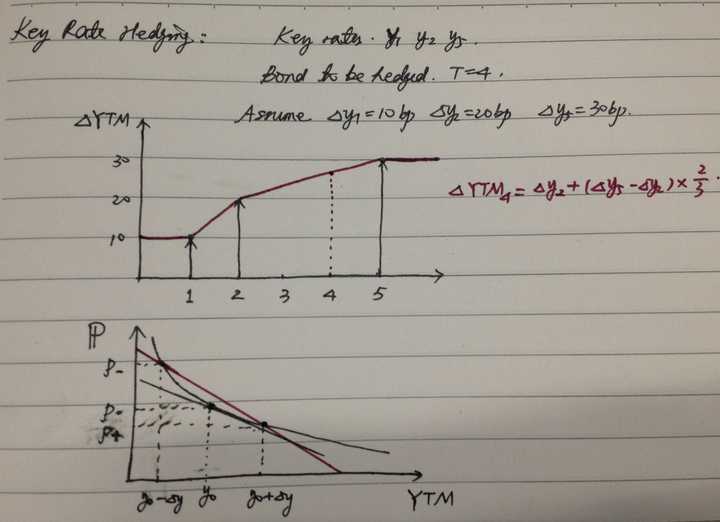 Key Rate Hedging: Key rates. y₁ y₂ y₅.
Bond to be hedged. T=4.
Assume Δy₁=10bp Δy₂=20bp Δy₅=30bp.
ΔYTM
30
20
10
ΔYTM₄ = Δy₂+(Δy₅-Δy₂)×2/3.
1 2 3 4 5
P
P-
P₀
P+
y₀-Δy y₀ y₀+Δy YTM